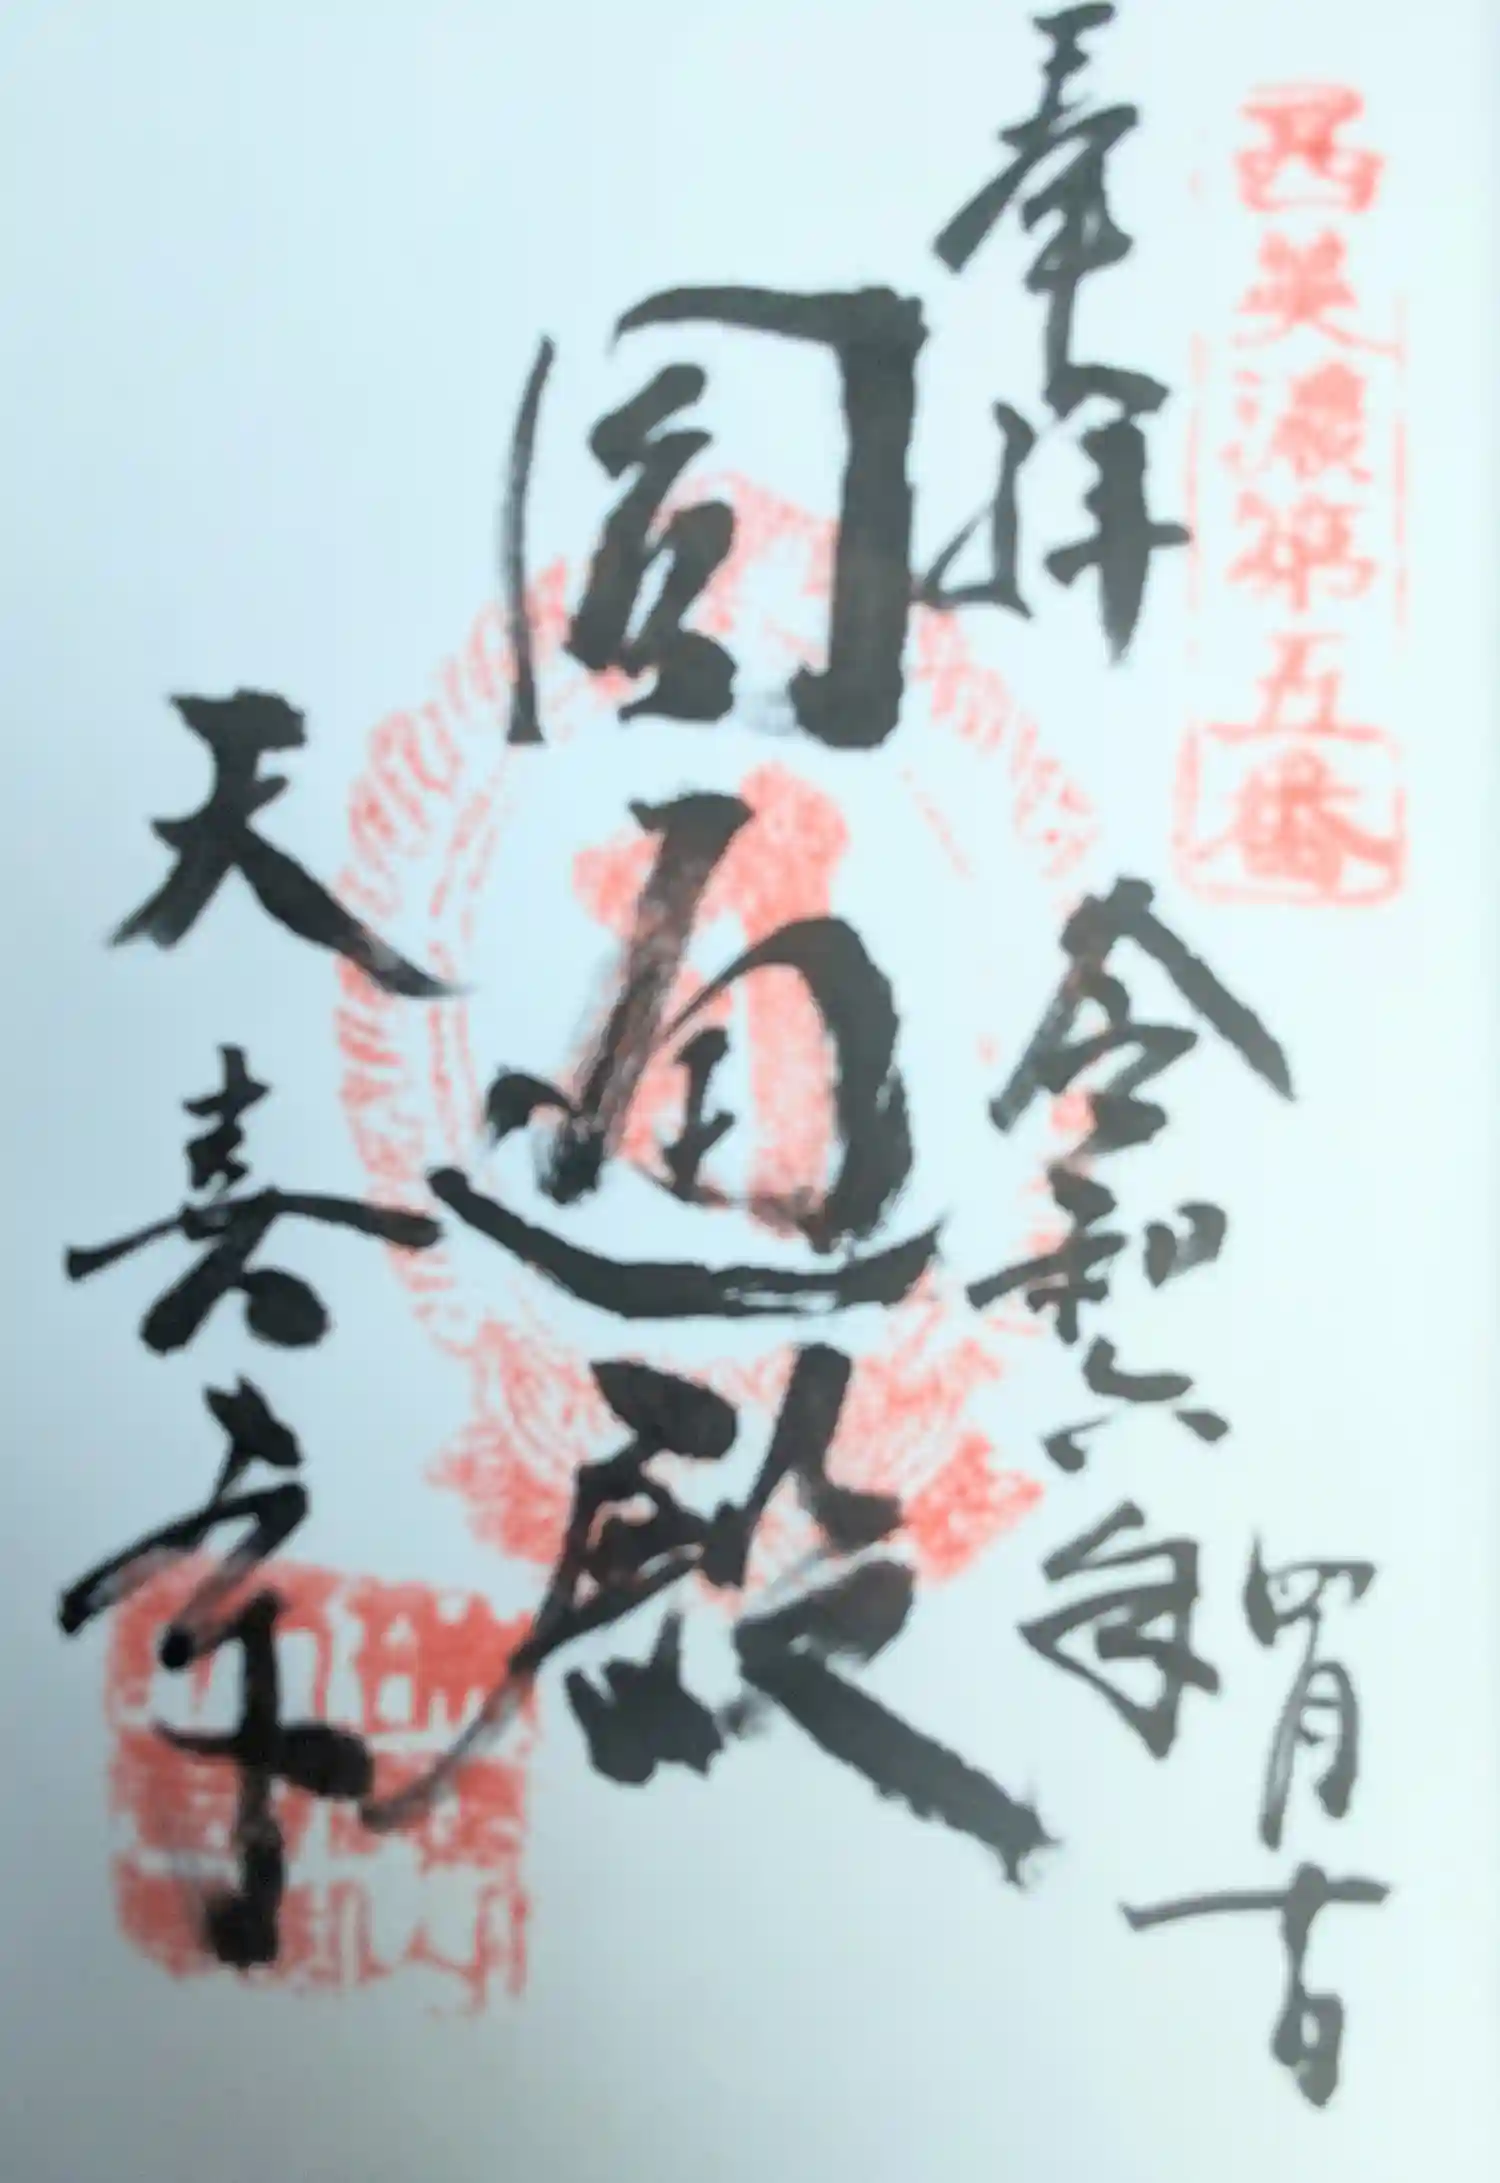 西美濃第五番
奉拝
令和六年
四月十日
圓通殿
天喜寺